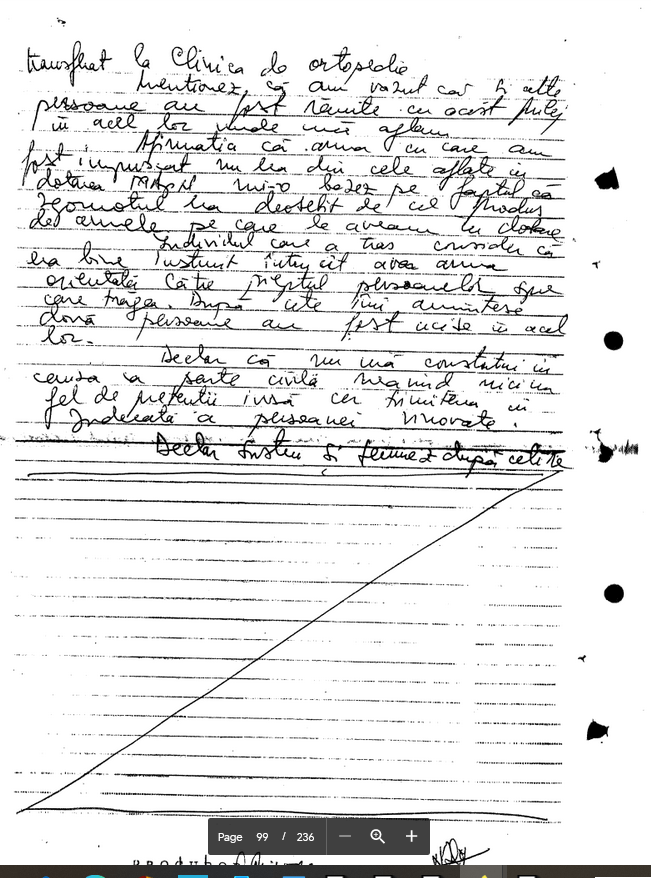 transferat la Clinica de ortopedie
Menționez că am văzut cav și alte
persoane au fost rănite cu acest prilej
în acel loc unde mă aflam
Afirmația că arma cu care am
fost împușcat nu era din cele aflate în
dotarea MApN mi-o bazez pe faptul că
zgomotul era deosebit de cel produs
de armele pe care le aveam în dotare
Individul care a tras consider că
era bine instruit întrucît avea arma
orientată către pieptul persoanelor spre
care trăgea. După cîte îmi amintesc
două persoane au fost ucise în acel
loc.
Declar că nu mă constitui în
cauză ca parte civilă neavînd nici un
fel de pretenții însă cer trimiterea în
judecată a persoanei vinovate.
Declar susțin și semnez după citire
Page 99 / 236